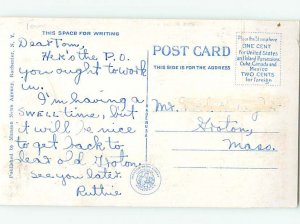 THIS SPACE FOR WRITING
Dear Tom,
Here's the P.O.
you ought to work
in.
I'm having a
SWELL time, but
it will be nice
to get back to
dear old Groton.
See you later.
Ruthie
Published by Manson News Agency, Rochester, N. Y.
POST CARD
THIS SIDE IS FOR THE ADDRESS
Place the Stamp here
ONE CENT
for United States
and Island Possessions
Cuba, Canada and
Mexico
TWO CENTS
for Foreign
Mr.
Groton,
Mass.